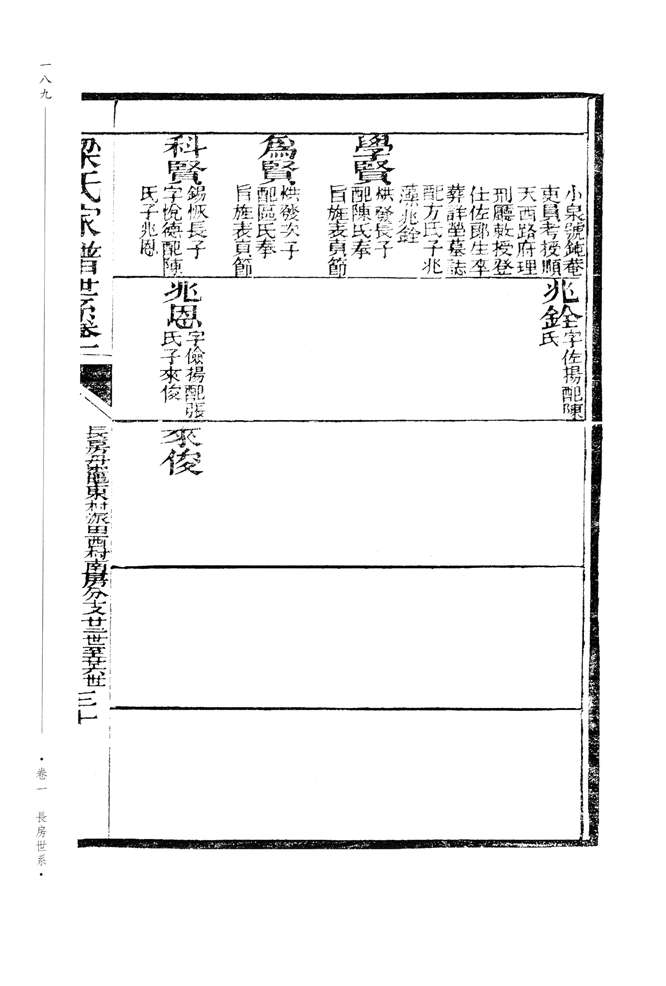 小泉號鈍菴
吏員考授順
天西路府理
刑廳敕授登
仕佐郎生卒
葬詳塋墓誌
配方氏子兆
藻兆銓
學賢
烘發長子
配陳氏奉
旨旌表貞節
為賢
烘發次子
配區氏奉
旨旌表貞節
科賢
錫恢長子
字悅德配陳
氏子兆恩
兆銓
字佐揚配陳
氏
兆恩
字儉揚配張
氏子來俊
來俊
梁氏家譜世系卷一
長房丹竈東村派田西村南房分支廿二世至廿六世
三十
一八九
·卷一 長房世系·